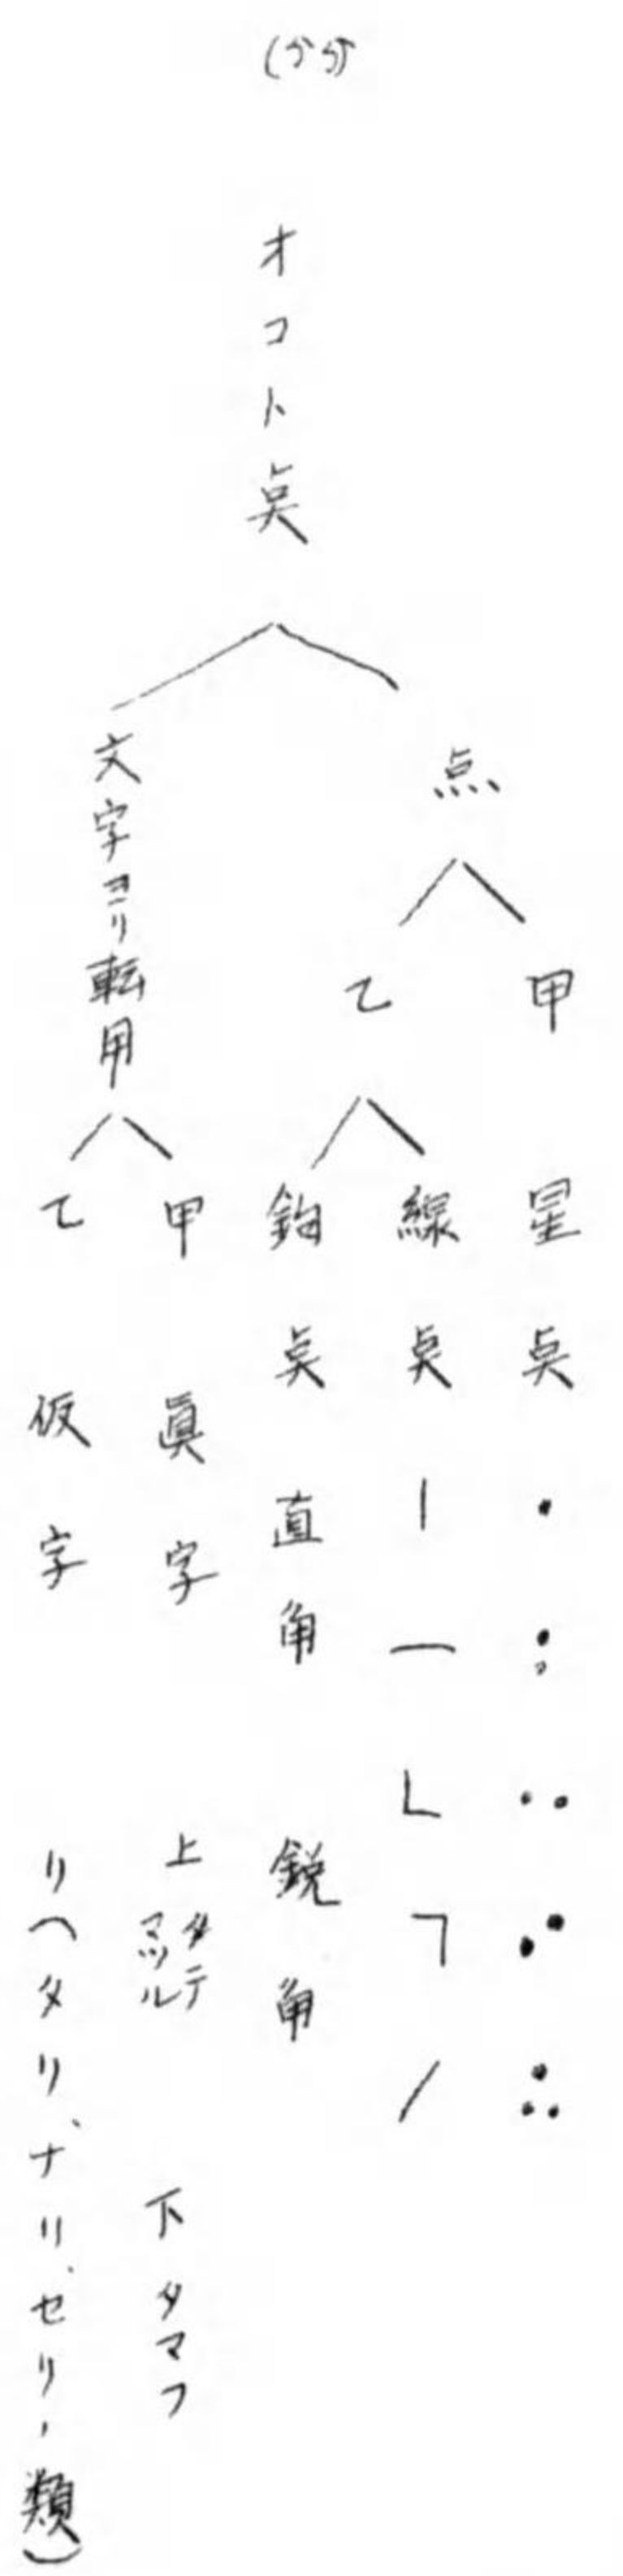 オコト点
点
甲 星点
乙
線点
鈎点 直角 鋭角
文字ヨリ転用
甲 眞字 上 タテマツル 下 タマフ
乙 仮字 リヘタリ、ナリ、セリノ類)